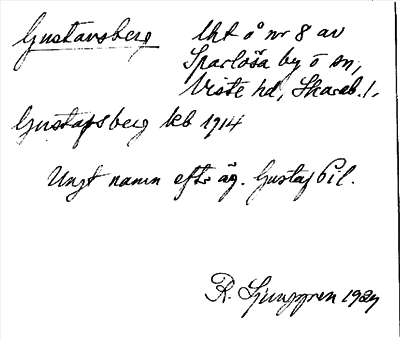 Gustavsberg lht å nr 8 av
Sparlösa by o sn,
Viste hd, Skarab. l.
Gustafsberg kb 1914
Ungt namn efter äg. Gustaf Pil.
R. Ljunggren 1927